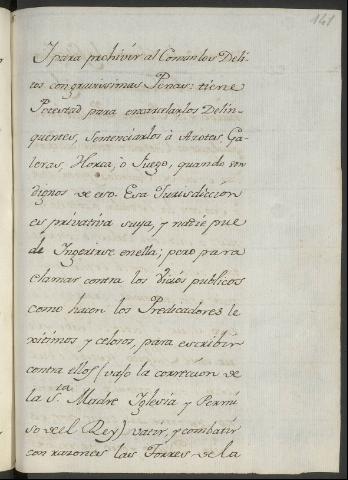 141
Y para prohivir al Comun los Deli-
tos con gravissimas Penas: tiene
Potestad para encarcelar los Delin-
quentes, Sentenciarlos à Azotes, Ga-
leras, Horca, ò Fuego, quando son
dignos de eso. Esa Jurisdiccion
es privativa suya, y nadie pue
de Ingerirse en ella; pero para
clamar contra los Vicios publicos
como hacen los Predicadores le
xitimos y celosos, para escribir
contra ellos (vajo la correccion de
la S.ta Madre Iglesia y Permi
so de el Rey) vatir, y combatir
con razones las Torres de la